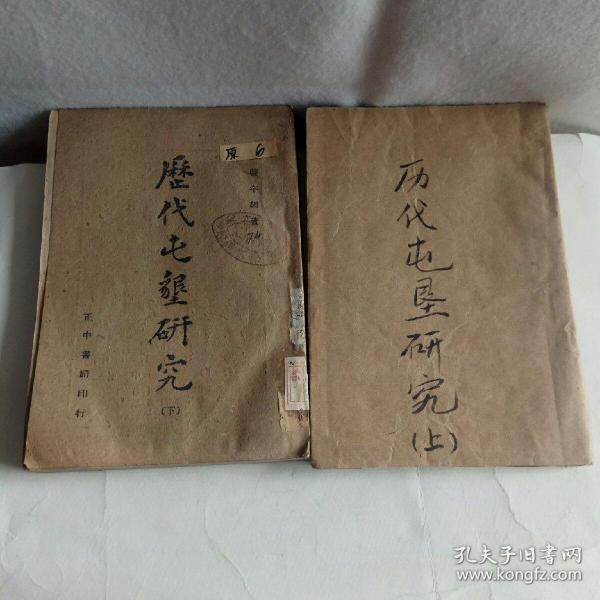 原 6
歷代屯墾研究
(下)
正中書局印行
74
历代屯垦研究
(上)
孔夫子旧书网
www.kongfz.com